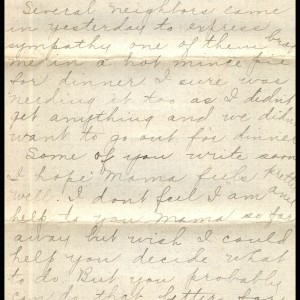 Several neighbors came
in yesterday to express
sympathy one of them
me in a hot mince pie
for dinner I sure was
needing it too as I didnt
get anything and we didn
want to go out for dinner
Some of you write soon
I hope Mama feels better and
well. I dont feel I am
help to you Mama so far
away but wish I could
help you decide what
to do. But you probably
can do that better